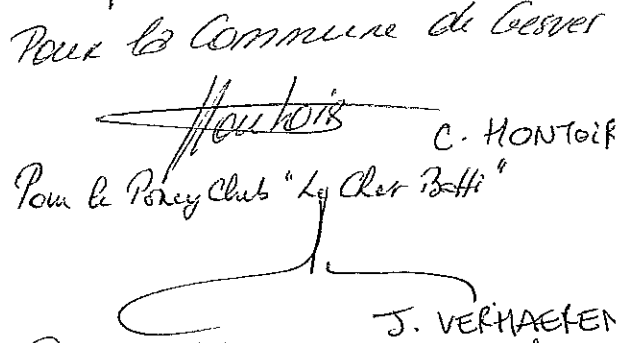 Pour la Commune de Gesves
Hontoir
C. HONTOIR
Pour le Poney Club "Le Cher Batti"
J. VERHAEREN